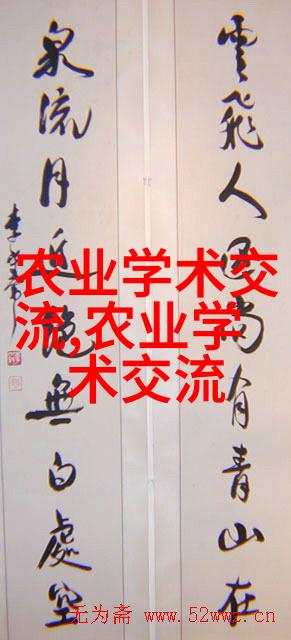 农业学术交
流,农业学
术交流
雲飛人尚有青山在
泉流月無白處空
无为斋 www.52wwz.cn